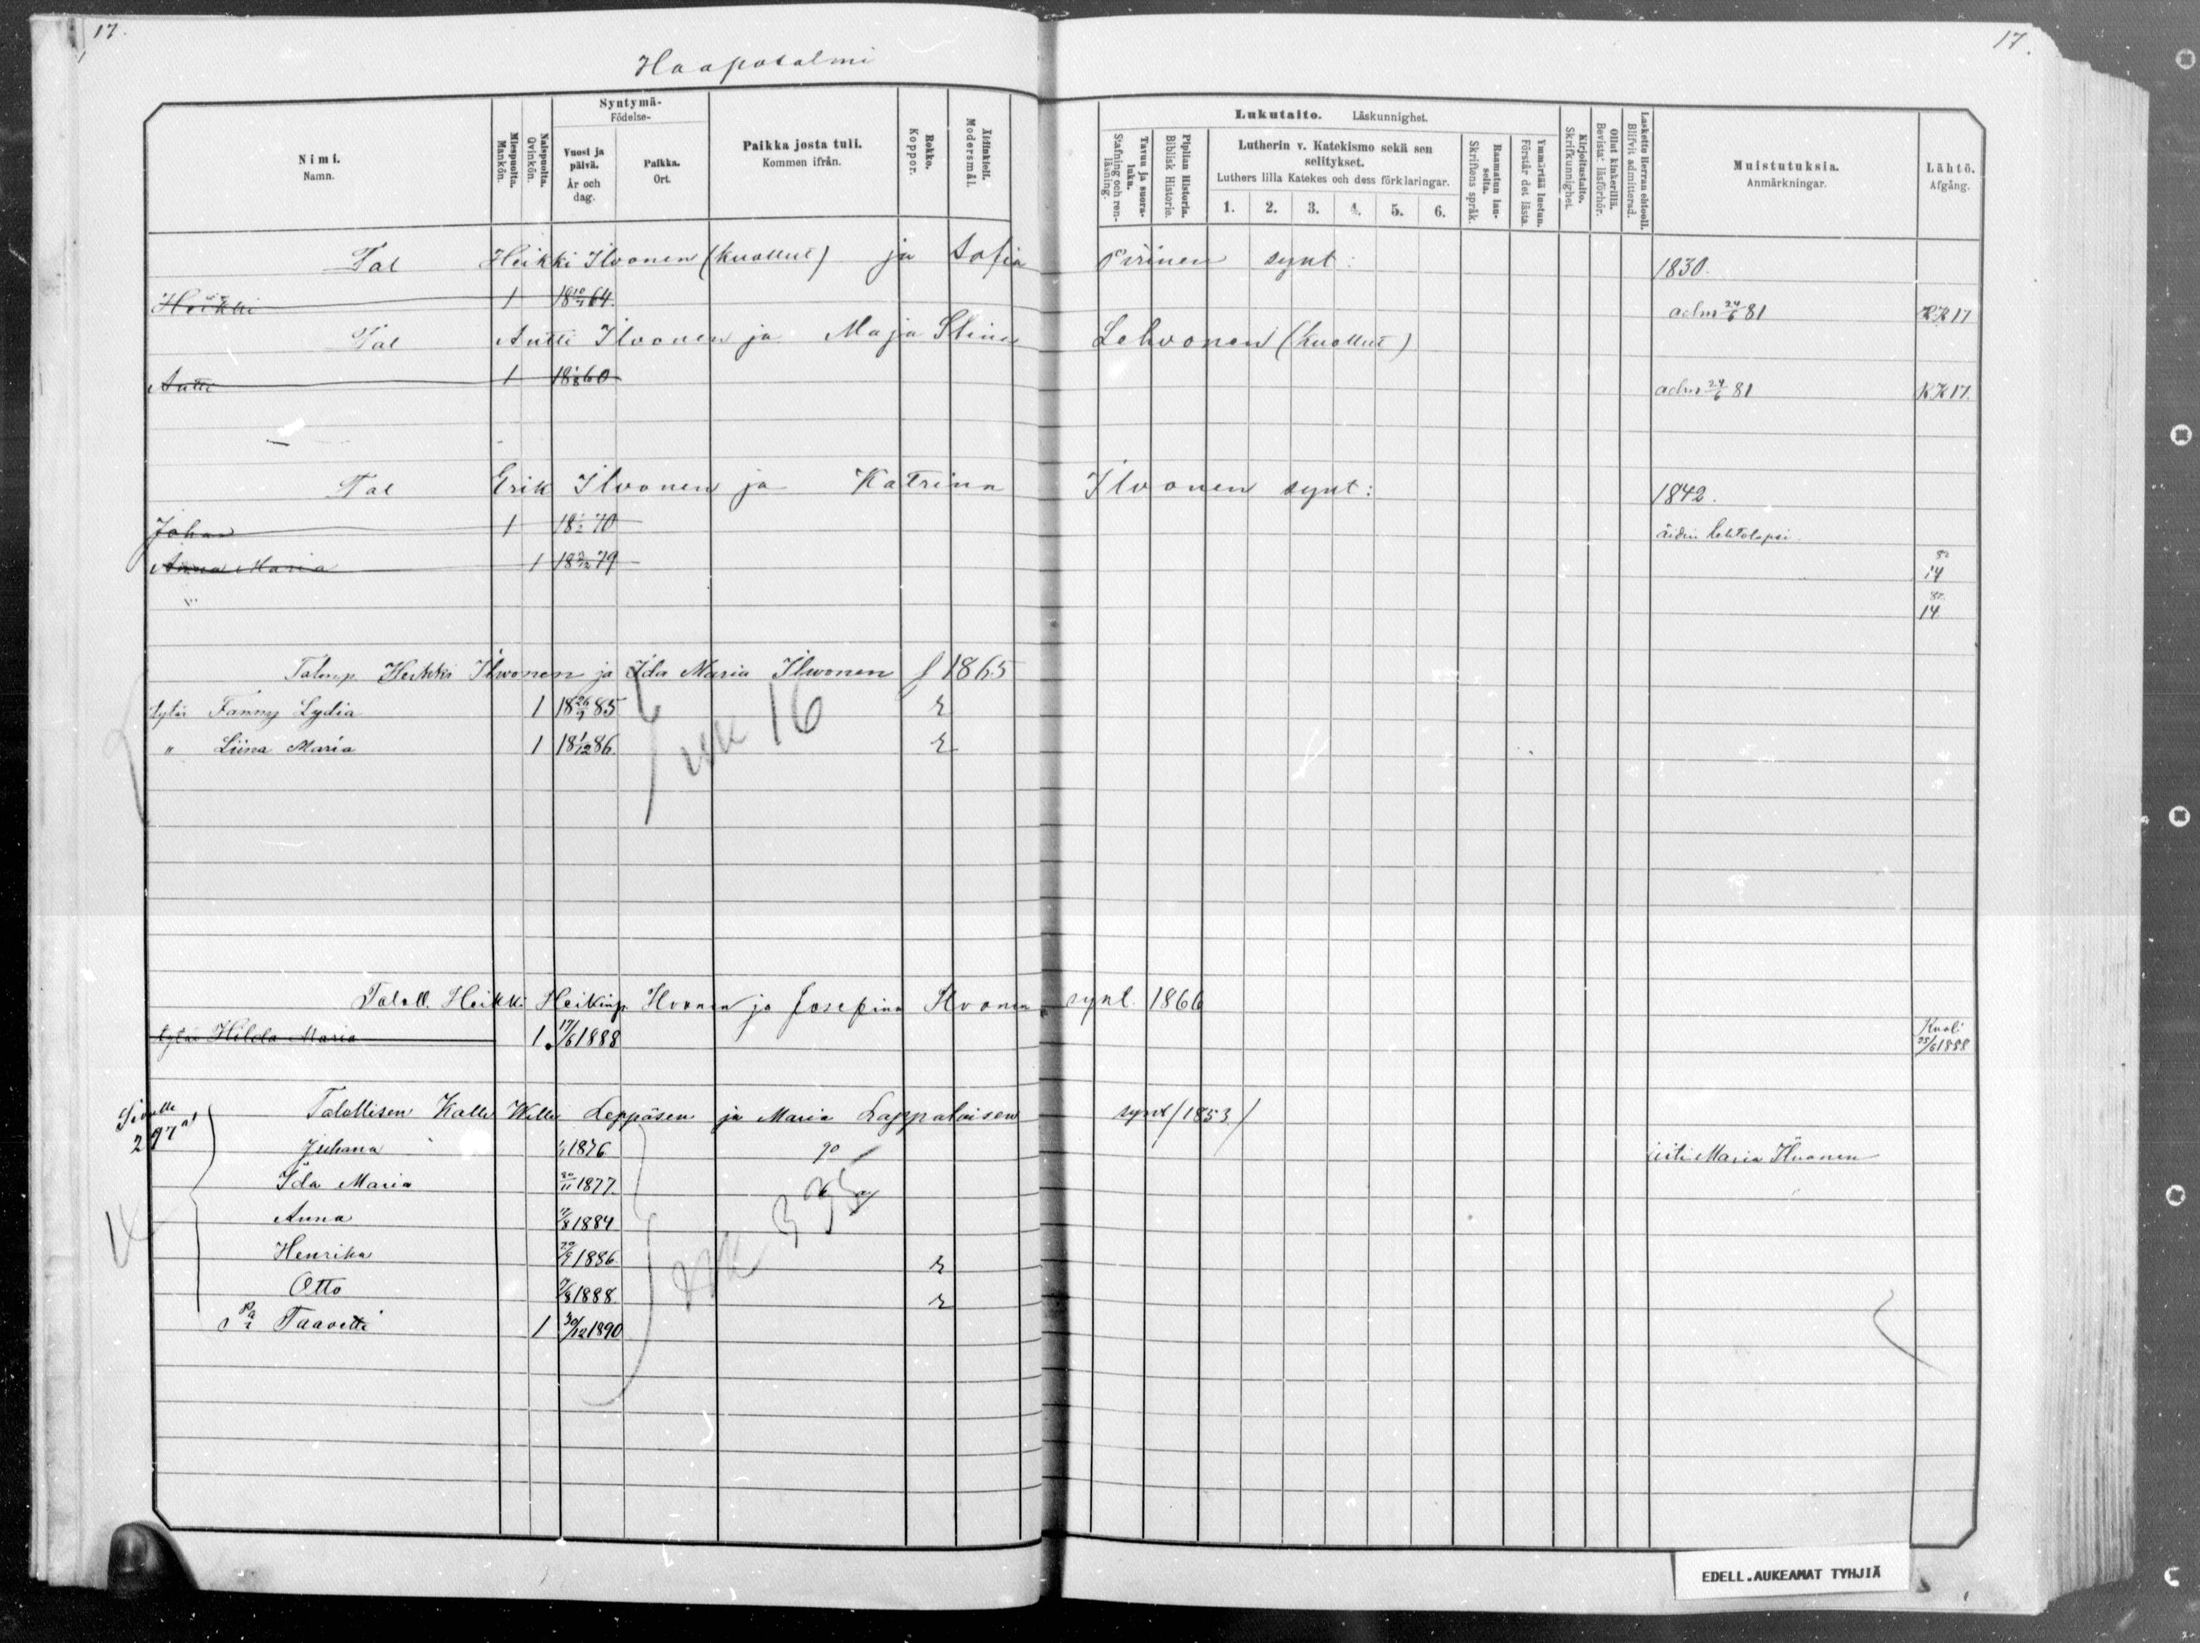 17.
17.
Haapasalmi
Nimi.
Namn.
Miespuolta.
Mankön.
Naispuolta.
Qvinkön.
Syntymä-
Födelse-
Vuosi ja päivä.
År och dag.
Paikka.
Ort.
Paikka josta tuli.
Kommen ifrån.
Rokko.
Koppor.
Äitinkieli.
Modersmål.
Lukutaito. Läskunnighet.
Tavuu ja suora-luku.
Stafning och ren-läsning.
Piplian Historia.
Biblisk Historie.
Lutherin v. Katekismo sekä sen
selitykset.
Luthers lilla Katekes och dess förklaringar.
1. 2. 3. 4. 5. 6.
Raamatun lauseita.
Skriftens språk.
Ymmärtää luetun.
Förstår det lästa.
Kirjoitustaito.
Skrifkunnighet.
Ollut kinkerillä.
Bevistat läsförhör.
Laskettu Herran ehtoolle.
Blifvit admitterad.
Muistutuksia.
Anmärkningar.
Lähtö.
Afgång.
Tal Heikki Ilvonen (kuollut) ja Sofia Pirinen synt: 1830.
Heikki 1 18 10/1 64. adm 24/6 81 RK 17
Tal Antti Ilvonen ja Maja Stina Lehvonen (kuollut)
Antti 1 18 1/8 60 adm 24/6 81 RK 17.
Tal Erik Ilvonen ja Katrina Ilvonen synt: 1842.
Johan 1 18 1/2 70 äidin lehtolapsi
Anna Maria 1 18 2/12 79 82 14
82 14
Talonp. Heikki Ilwonen ja Ida Maria Ilwonen f 1865
tytär Fanny Lydia 1 18 26/9 85 r
" Liina Maria 1 18 1/12 86. r
16
Taloll. Heikki Heikinp. Ilvonen ja Josefina Ilvonen synt. 1866
tytär Hilda Maria 1. 17/6 1888 Kuoli 25/6 1888
Sivulle 297
Talollisen Kalle Wille Leppäsen ja Maria Lappalaisen synt (1853)
Juhana 1/1 1876 90 äiti Maria Ilvonen
Ida Maria 20/11 1877.
Anna 11/8 1884
Henrika 29/9 1886. r
Otto 7/8 1888. r
Pa Taavetti 1 30/12 1890
RK 335
EDELL.AUKEAMAT TYHJIÄ